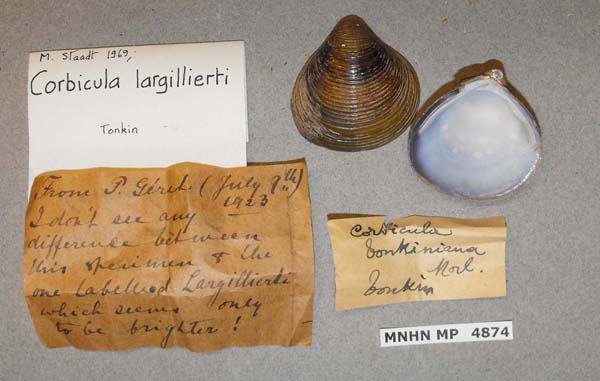 M. Staadt 1969,
Corbicula largillierti
Tonkin
From P. Géret (July 9th)
1923
I don't see any
difference between
this specimen & the
one labelled Largillierti
which seems only
to be brighter !
Corbicula
tonkiniana
Morl.
Tonkin
MNHN MP 4874